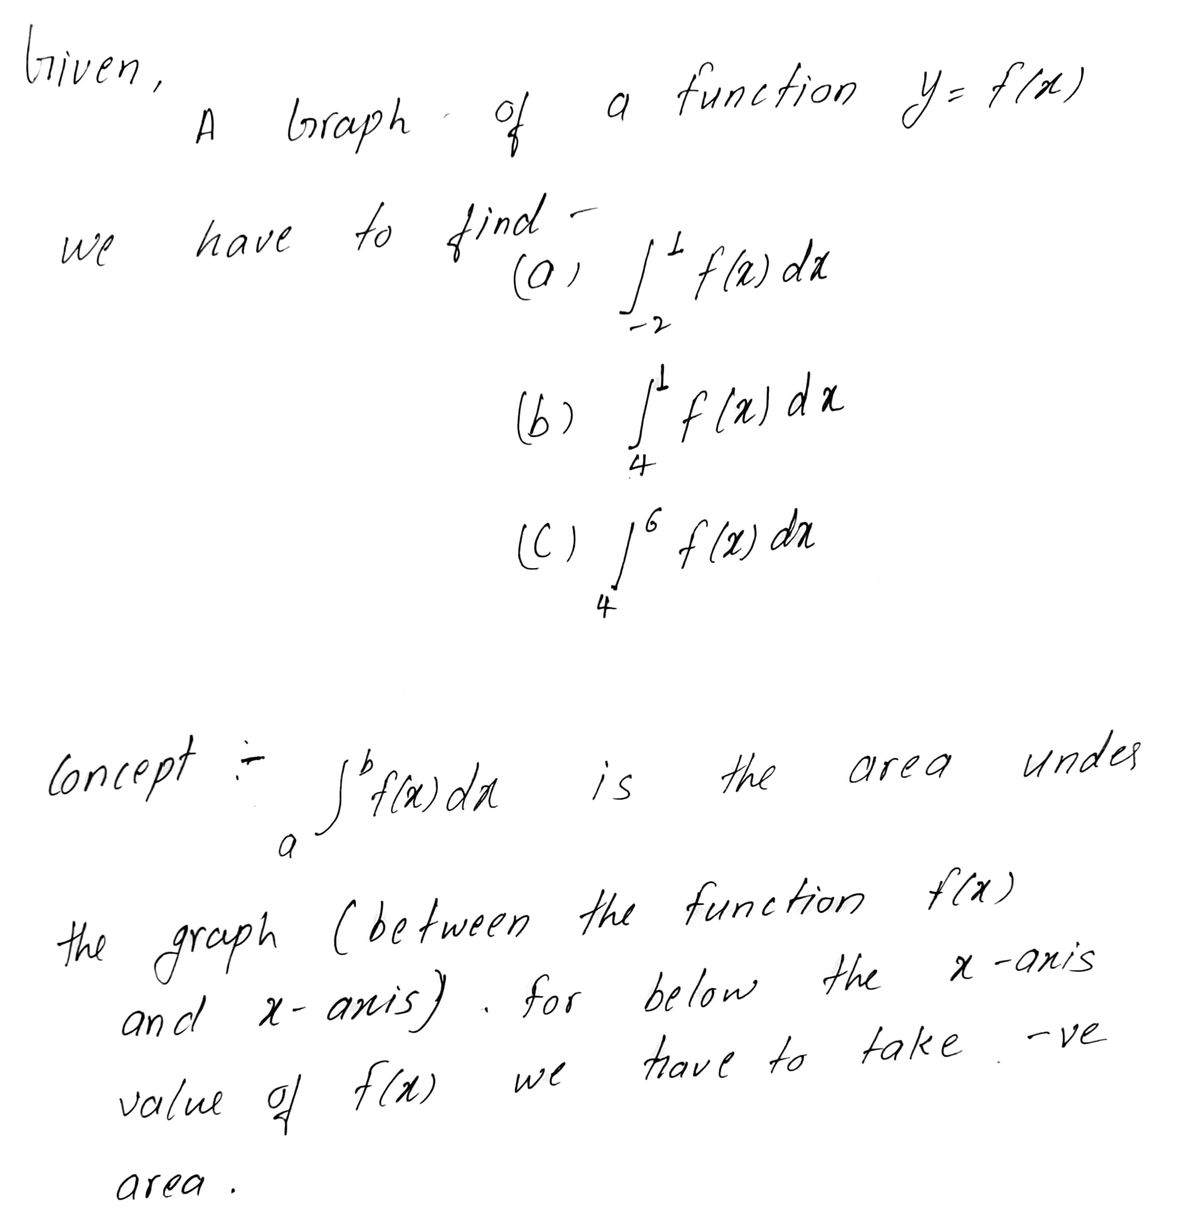 Given,
A Graph of a function y = f(x)
we have to find -
(a) ∫₋₂¹ f(x) dx
(b) ∫₄¹ f(x) dx
(c) ∫₄⁶ f(x) dx
Concept :- ₐ∫ᵇ f(x) dx is the area under
the graph (between the function f(x)
and x-axis). for below the x-axis
value of f(x) we have to take -ve
area.